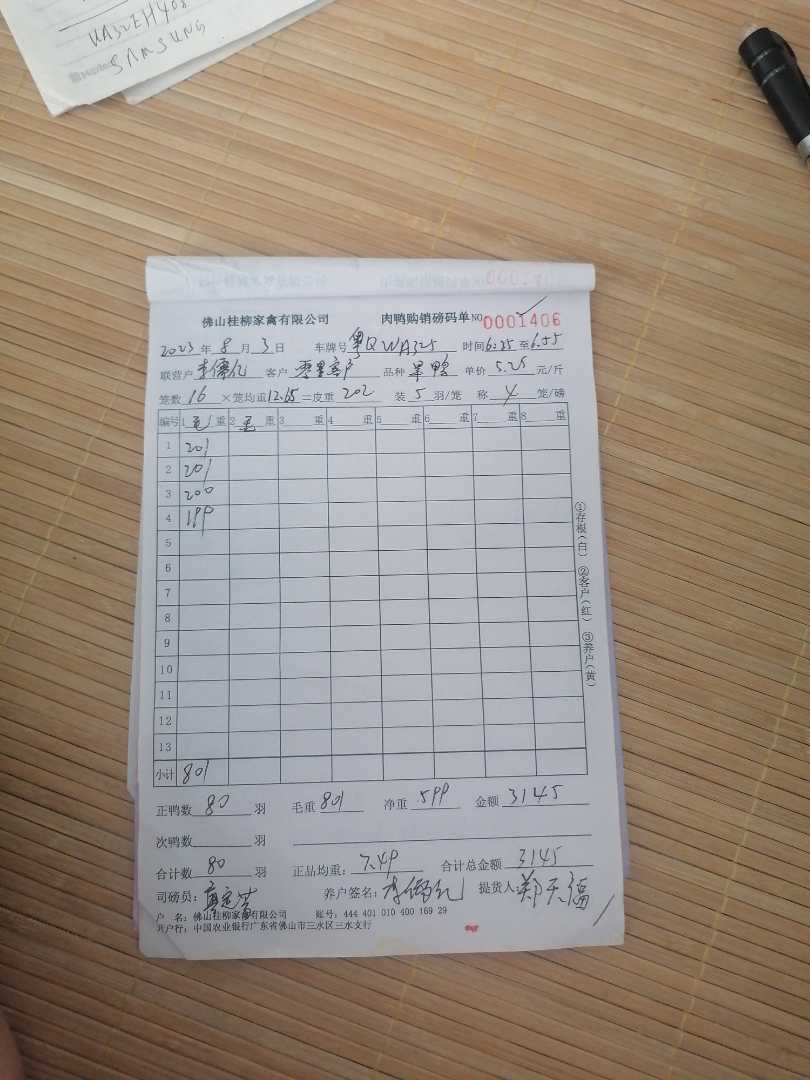 UA32EH408
SAMSUNG
佛山桂柳家禽有限公司 肉鸭购销磅码单 NO 0001406
2023年8月3日 车牌号 粤QWA325 时间6.25至6.55
联营户 客户 零星客户 品种 单价 5.25 元/斤
笼数 16 ×笼均重12.65=皮重 202 装 5 羽/笼 称 4 笼/磅
编号 1 毛 重 2 毛 重 3 重 4 重 5 重 6 重 7 重 8 重
1 201
2 201
3 200
4 199
5
6
7
8
9
10
11
12
13
小计 801
①存根(白) ②客户(红) ③养户(黄)
正鸭数 80 羽 毛重 801 净重 599 金额 3145
次鸭数 羽
合计数 80 羽 正品均重: 7.49 合计总金额 3145
司磅员: 养户签名: 提货人: 郑天福
户 名: 佛山桂柳家禽有限公司 账号: 444 401 010 400 169 29
开户行: 中国农业银行广东省佛山市三水区三水支行